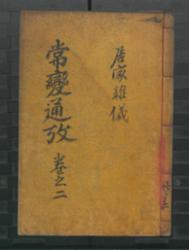 居家雜儀
常變通攷 卷之二